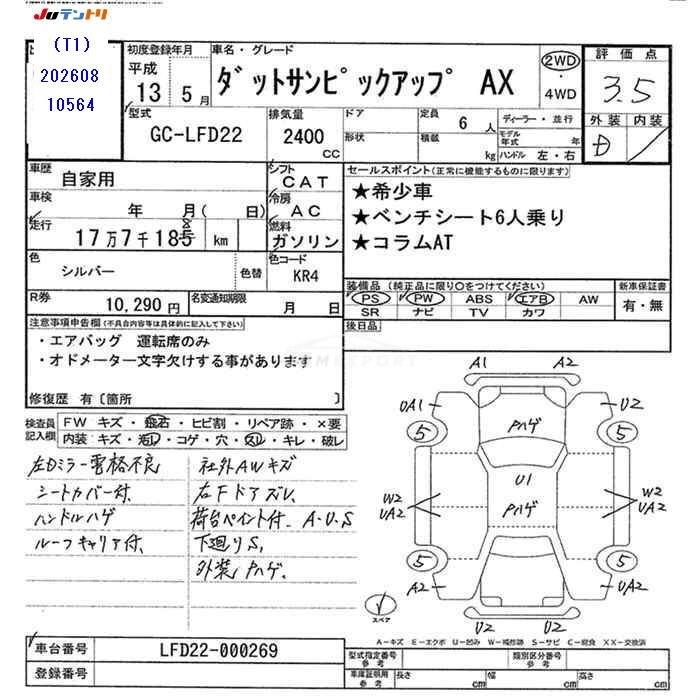 JUテントリ
(T1)
202608
10564
初度登録年月
平成
13 5月
車名・グレード
ダットサンピックアップ AX
2WD
・
4WD
評価点
3.5
外装 内装
D
型式
GC-LFD22
排気量
2400
CC
ドア
形状
定員 6 人
積載 kg
ディーラー・並行
モデル年式 年
ハンドル 左・右
車歴
自家用
車検 年 月( 日)
走行 17万7千185 km
シフト
CAT
冷房
AC
燃料
ガソリン
セールスポイント(正常に機能するものに限ります)
★希少車
★ベンチシート6人乗り
★コラムAT
色
シルバー
色替
色コード
KR4
装備品(純正品に限り○をつけてください)
PS PW ABS エアB AW
SR ナビ TV カワ
新車保証書
有・無
R券 10,290円
名変通知期限 月 日
後日品
注意事項申告欄(不具合内容等は具体的に記入して下さい)
・エアバッグ 運転席のみ
・オドメーター文字欠けする事があります
修復歴 有〔箇所 〕
検査員記入欄
FW キズ・飛石・ヒビ割・リペア跡・×要
内装・キズ・汚レ・コゲ・穴・スレ・キレ・破レ
左Dミラー電格不良
シートカバー付.
ハンドルハゲ
ルーフキャリア付.
社外AWキズ
右Fドアズレ.
荷台ペイント付. A.U.S
下廻りS.
外装Pハゲ.
A1 A2
UA1 U2
5 5
Pハゲ
U1
Pハゲ
W2
UA2
W2
UA2
5 5
A2 UA2
U2 U2
スペア
A-キズ E-エクボ U-凹み W-補修跡 S-サビ C-腐食 XX-交換済
車台番号 LFD22-000269
登録番号
型式指定番号
参考
類別区分番号
参考
車庫証明用
参考
長さ cm 幅 cm 高さ cm